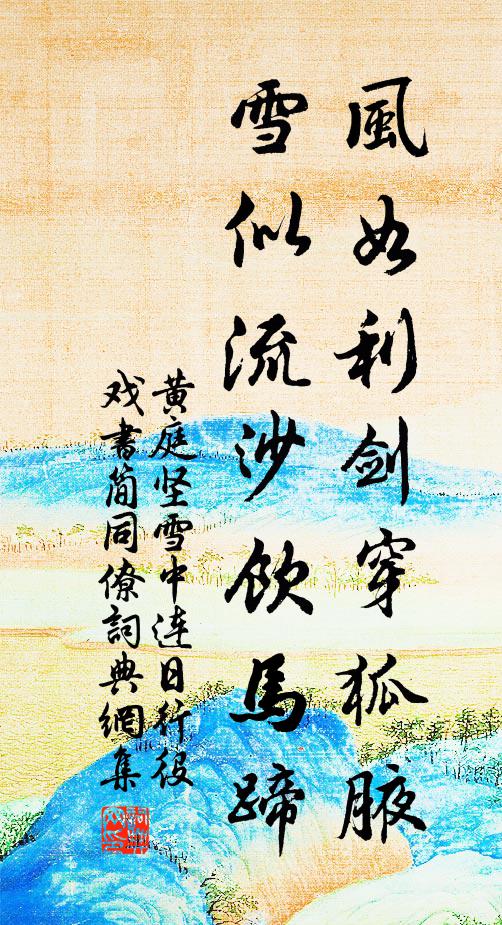 風如利劍穿狐腋
雪似流沙飲馬蹄
黄庭坚雪中連日行役
戏書簡同僚詞典網集